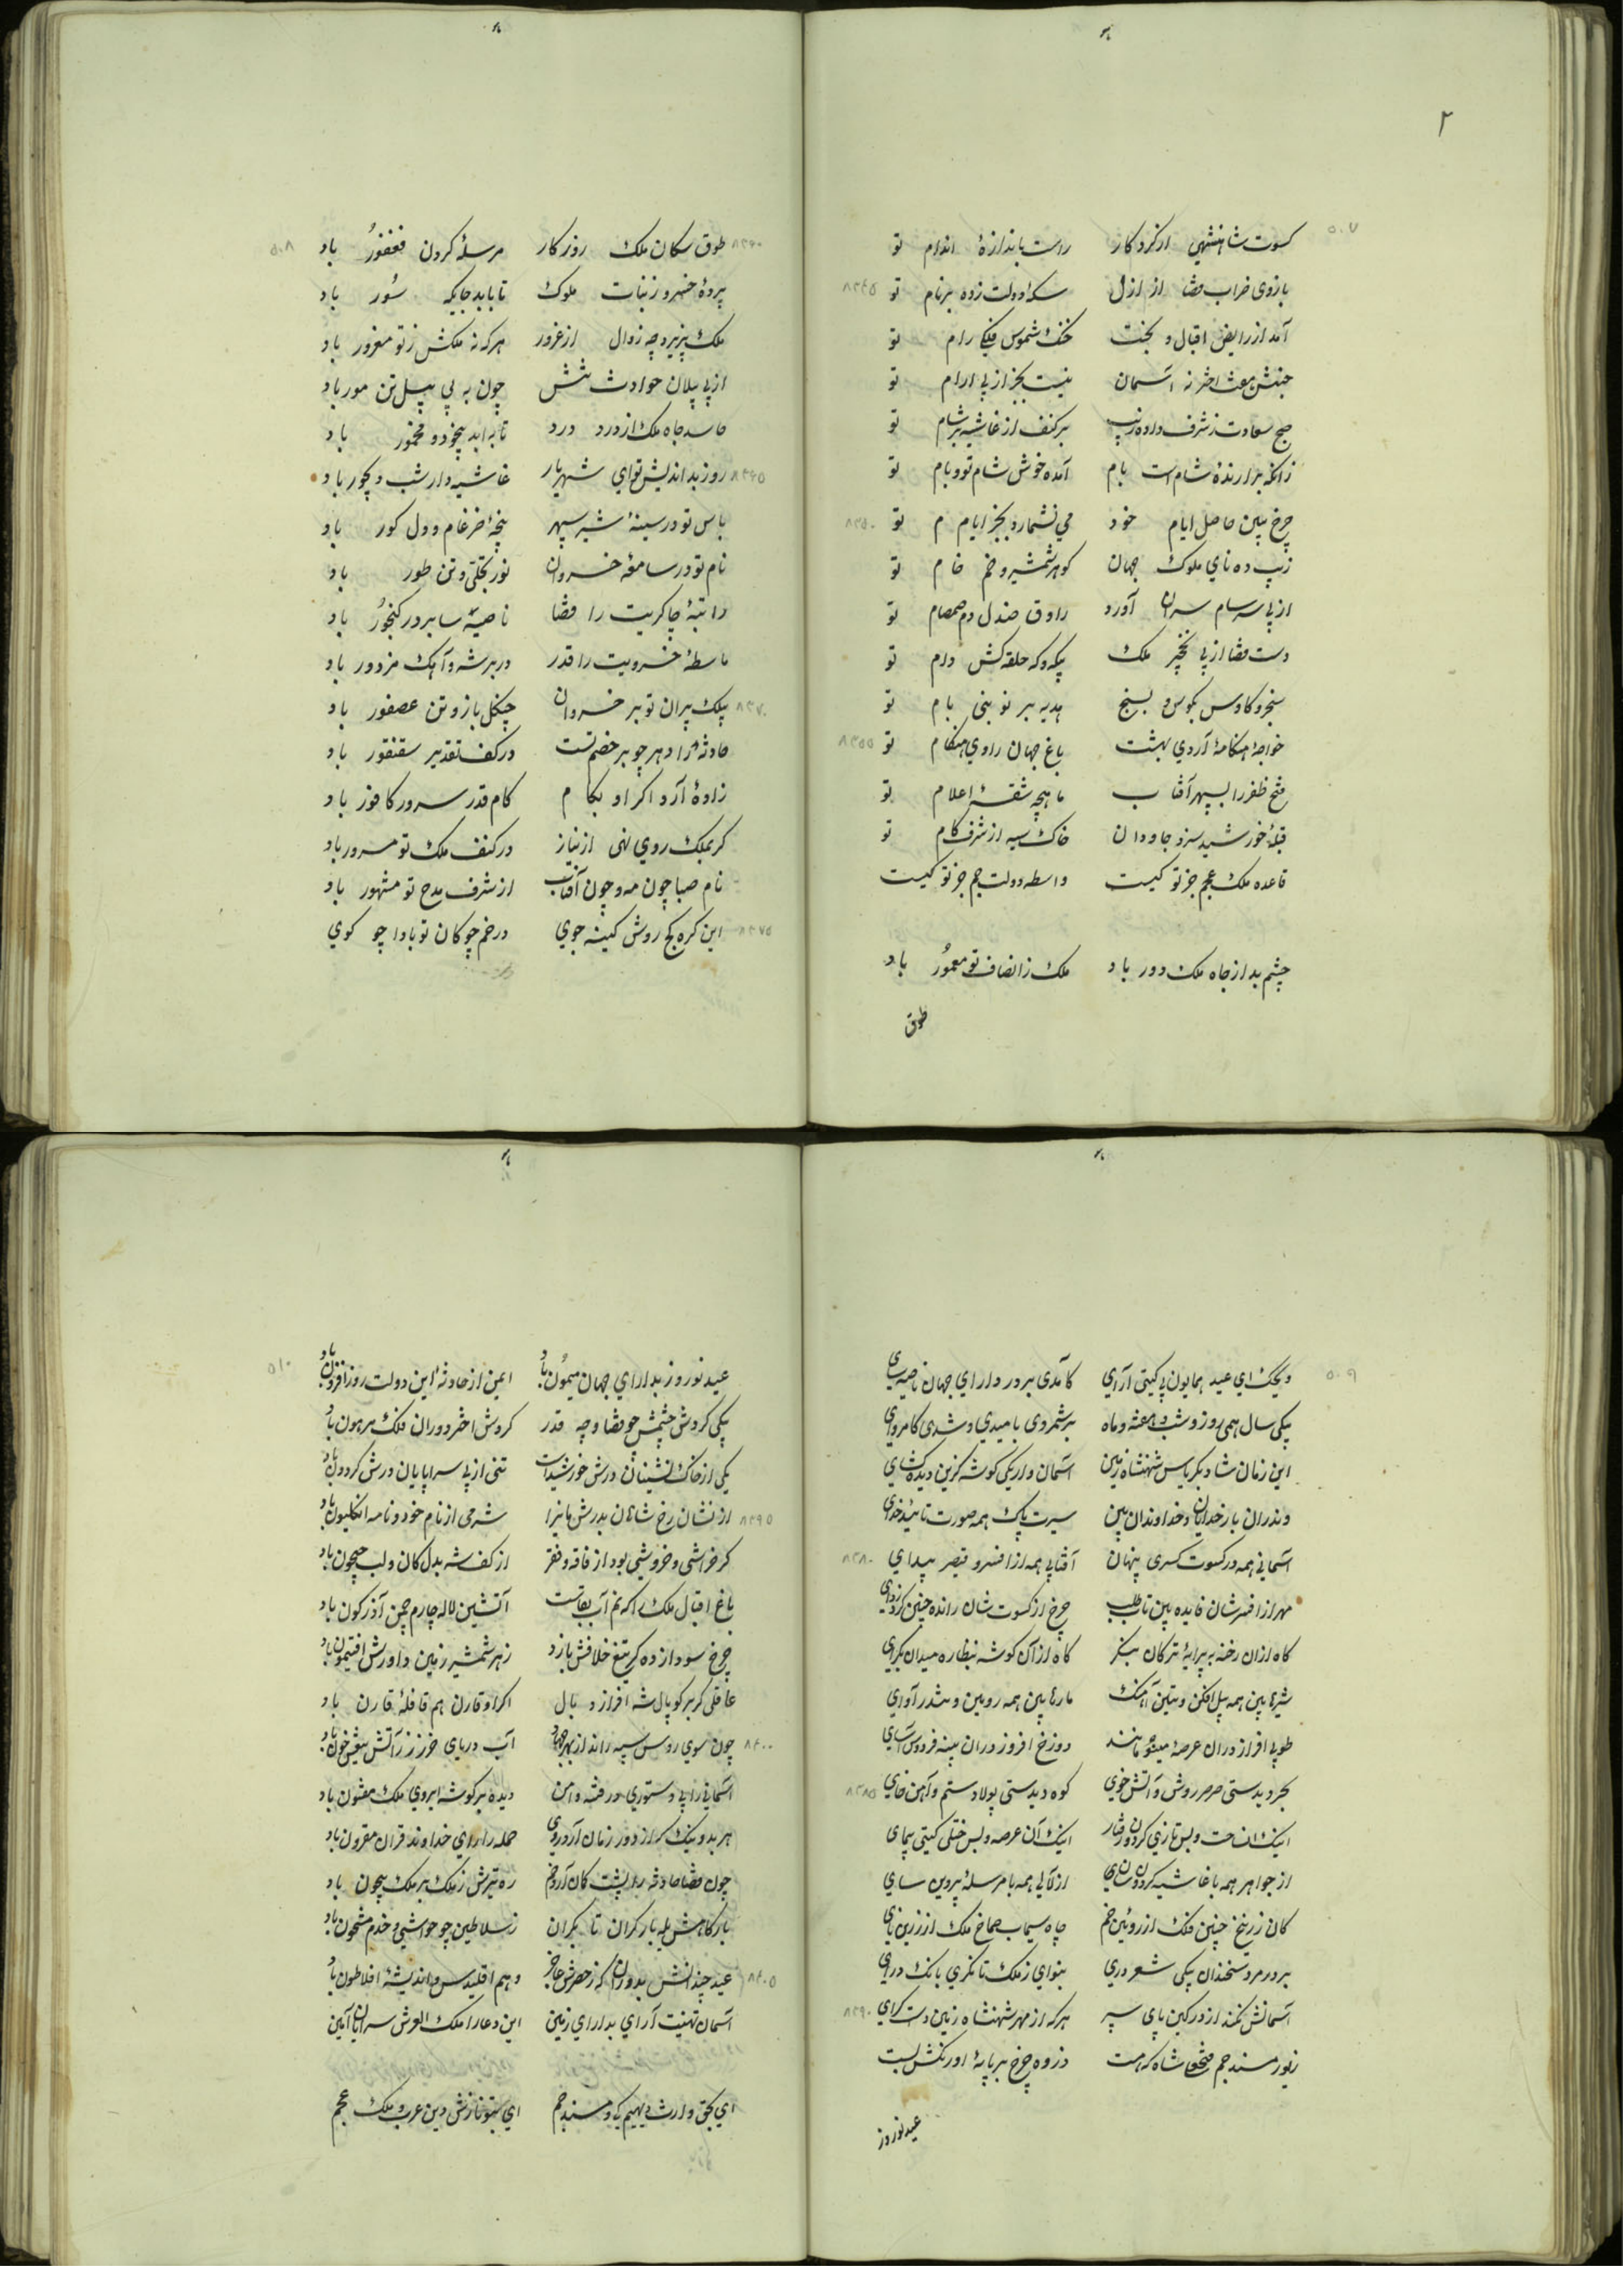 ۲
۵۰۷
کسوت شاهنشهی از کردکار راست باندازهٔ اندام تو
بازوی ضراب قضا از ازل سکهٔ دولت زده بر نام تو ۸۳۴۵
آمد از رایض اقبال و بخت خنک شموس فلکی رام تو
جنبش هفت اختر نه آسمان نیست بجز از پی ارام تو
صبح سعادت ز شرف داده زیب بر کتف از غاشیه بر شام تو
زانکه برارندهٔ شام است بام آمده خوش شام تو و بام تو
چرخ ببین حاصل ایام خود می نشمارد بجز ایام تو ۸۳۵۰
زیب ده نای ملوک جهان کوهر شمشیر و خم خام تو
از پی سرسام سران آورد راوق صندل دم صمصام تو
دست قضا از پی نخچیر ملک حلقه کش دام تو
سنجر و کاوس بکوس و بسنج هدیه بر نوبتی بام تو
خواجهٔ هنکامهٔ اردی بهشت باغ جهان راوی هنکام تو ۸۳۵۵
فتح ظفر را بسپهر آفتاب ماهچهٔ شقهٔ اعلام تو
قبلهٔ خورشید سزد جاودان خاک سیه از شرف کام تو
قاعده ملک عجم جز تو کیست واسطه دولت جم جز تو کیست
چشم بد از جاه ملک دور باد ملک ز انصاف تو معمور باد
طوق
۵۰۸
طوق سکان ملک روزکار مرسلهٔ کردن فغفور باد ۸۳۶۰
پردهٔ خسرو ز بنات ملوک تا بابد جایکه سور باد
ملک پذیرد چه زوال از غرور هر که نه ملکش ز تو مغرور باد
از پی پیلان حوادث تنش چون به پی پیل تن مور باد
حاسد جاه ملک از درد درد تا به ابد بیخود و مخمور باد
روز بداندیش تو ای شهریار غاشیه دار شب دیجور باد ۸۳۶۵
باس تو در سینهٔ شیر سپهر پنجهٔ ضرغام و دل کور باد
نام تو در سامعهٔ خسروان نور تجلی و تن طور باد
راتبهٔ چاکریت را قضا ناصیه سا بر در کنجور باد
ماسطهٔ خسرویت را قدر مزدور باد
پیلک پران تو بر خسروان چنکل باز و تن عصفور باد ۸۳۷۰
حادثه زا دهر چو بر خصم تست در کف تقدیر سقنقور باد
زادهٔ آز و اکر او بکام کام قدر سرور کافور باد
کر بملک روی نهی از نیاز در کنف ملک تو مسرور باد
نام صبا چون مه و چون آفتاب از شرف مدح تو مشهور باد
این کرهٔ کج روش کینه جوی در خم چوکان تو بادا چو کوی ۸۳۷۵
۵۰۹
ویحک ای عید همایون پی کیتی آرای کامدی بر در دارای جهان ناصیه سای
یکی سال همی روز و شب و هفته و ماه بر شمردی بامیدی و شدی کامروای
این زمان شاد بکریاس شهنشاه زمین آسمان وار یکی کوشه کزین دیده کشای
وندران بار خدایان و خداوندان بین سیرت پاک همه صورت تایید خدای
آسمانی همه در کسوت کسری پنهان آفتابی همه از افسر قیصر پیدای ۸۳۸۰
مهر از افسرشان فایده بین تاب طلب چرخ از کسوت شان رانده چنین کرد زدای
کاه ازان رخنه به پیرایهٔ ترکان بنکر کاه از آن کوشه بنظاره میدان بکرای
شیرها بین همه پیل افکن و تنین آهنک مارها بین همه رویین و تندر آوای
طوبی افراز دران عرصهٔ مینو مانند دوزخ افروز دران پهنه فردوس آسای
بحر دیدستی صرصر روش و آتش خوی کوه دیدستی پولاد سم و آهن خای ۸۳۸۵
اینک آن ساحت و بس تازی کردون رفتار اینک آن عرصه و بس ختلی کیتی پیمای
از جواهر همه با غاشیه کردون سای از لآلی همه با مرسلهٔ پروین سای
کان زرنیخ چنین فلک از روئین خم چاه سیماب صماخ ملک از زرین نای
بر در مرو سخندان یکی شعر دری بنوای ز ملک تا نکری بانک درای
آسمانش نکند از در کین پای سپر هر که از مهر شهنشاه زمین دست کرای ۸۳۹۰
زیور مسند جم فتحعلی شاه که هست ذروه چرخ بر پایهٔ اورنکش پست
عید نوروز
۵۱۰
عید نوروز بدارای جهان میمون باد ایمن از حادثه این دولت روز افزون باد
یکی کردش چشمش چو قضا و چه قدر کردش اختر و دوران فلک مرهون باد
یکی از خاک نشینان درش خورشیدست تنی از بی سر و پایان درش کردون باد
از نشان رخ شاهان بدرش مانرا شرمی از نام خود و نامه انکلیون باد ۸۳۹۵
کر خراشی و خروشی بود از فاقه و فقر از کف شه بدل کان و لب جیحون باد
باغ اقبال ملک را که نم آب بقاست آتشین لاله چارم چمن آذرکون باد
چرخ سودا زده کر تیغ خلافش یازد زهر شمشیر زمین داورش افتیمون باد
عاقلی کر بر کوپال شه افرازد یال اکر او قارن هم قافلهٔ قارن باد
چون سوی روس سپه راند از بهر جهاد آب دریای خزر ز آتش تیغش خون باد ۸۴۰۰
آسمانی را پی دستوری در فتنه و امن دیده بر کوشه ابروی ملک مفتون باد
هر بد و نیک که از دور زمان آرد روی جمله را رای خداوند قران مقرون باد
چون قضا حادثه را پشت کمان آرد خم ره تیرش ز ملک بر ملک بیچون باد
بارکاهش یله بار کران تا بکران ز سلاطین چو حواشی و خدم مشحون باد
عید چندانش بدوران که ز حصرش عاجز وهم اقلیدس و اندیشهٔ افلاطون باد ۸۴۰۵
آسمان تهنیت آرای بدارای زمین این دعا را ملک العرش سرایان آمین
ای بحق وارث دیهیم کی و مسند جم ای بتو نازش دین عرب و ملک عجم